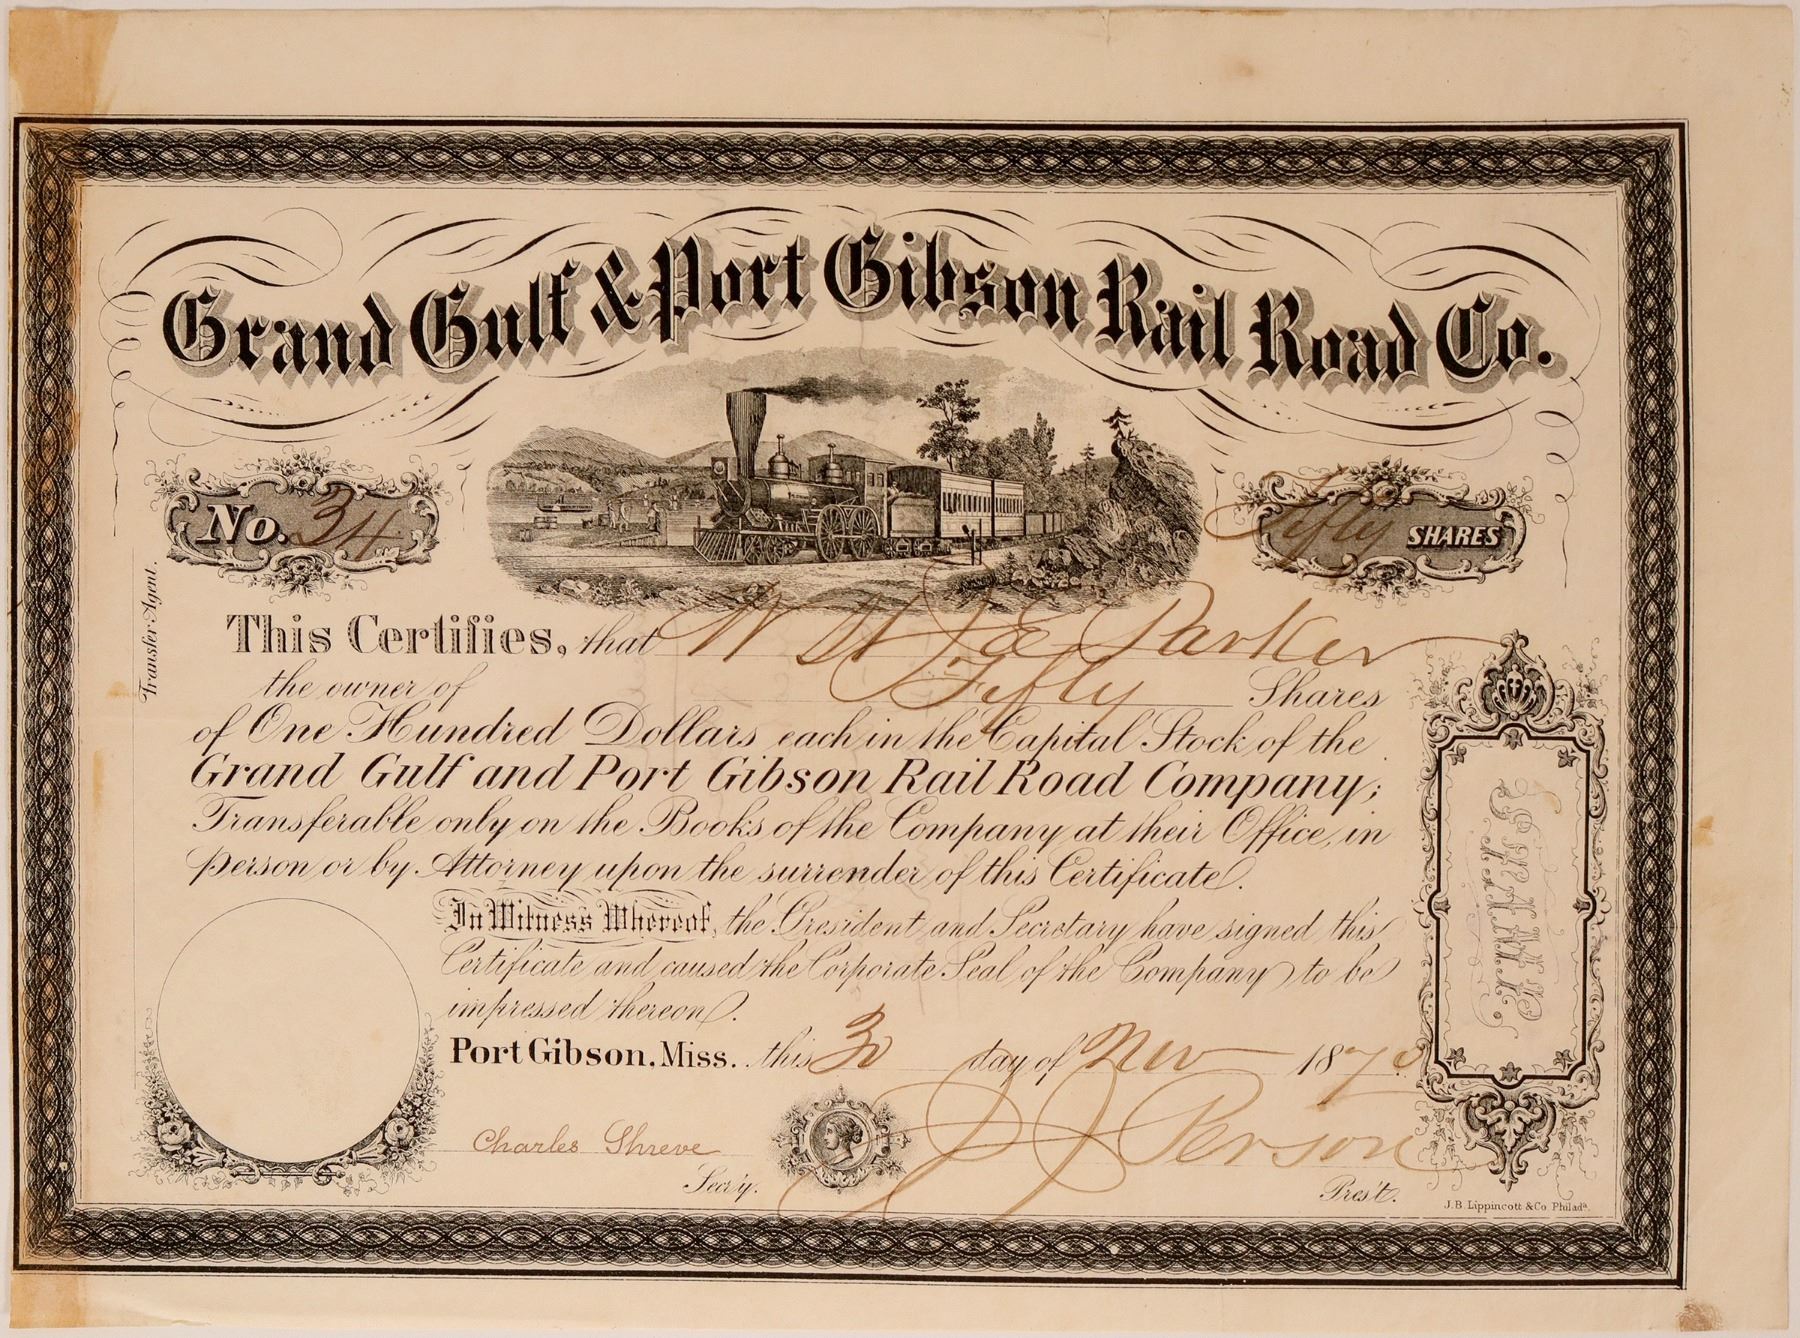 Grand Gulf & Port Gibson Rail Road Co.
No. 34
Fifty SHARES
Transfer Agent.
This Certifies, that W H & J E Parker
the owner of Fifty Shares
of One Hundred Dollars each in the Capital Stock of the
Grand Gulf and Port Gibson Rail Road Company;
Transferable only on the Books of the Company at their Office, in
person or by Attorney upon the surrender of this Certificate.
In Witness Whereof, the President and Secretary have signed this
Certificate and caused the Corporate Seal of the Company to be
impressed thereon.
Port Gibson, Miss. this 30 day of Nov 1870
Charles Shreve
Sec'y.
J J Person
Pres't.
J.B. Lippincott & Co. Philada.